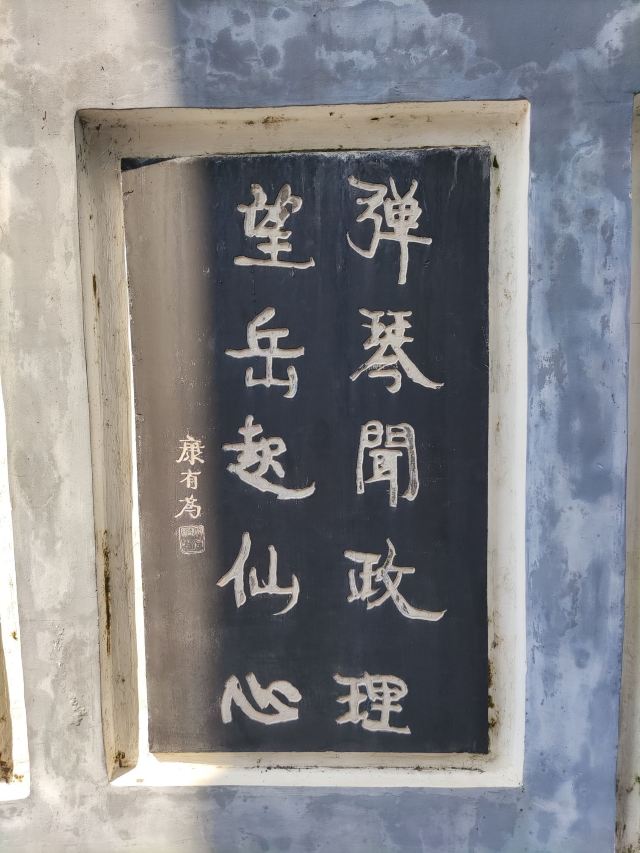 弹琴聞政理
望岳起仙心
康有為